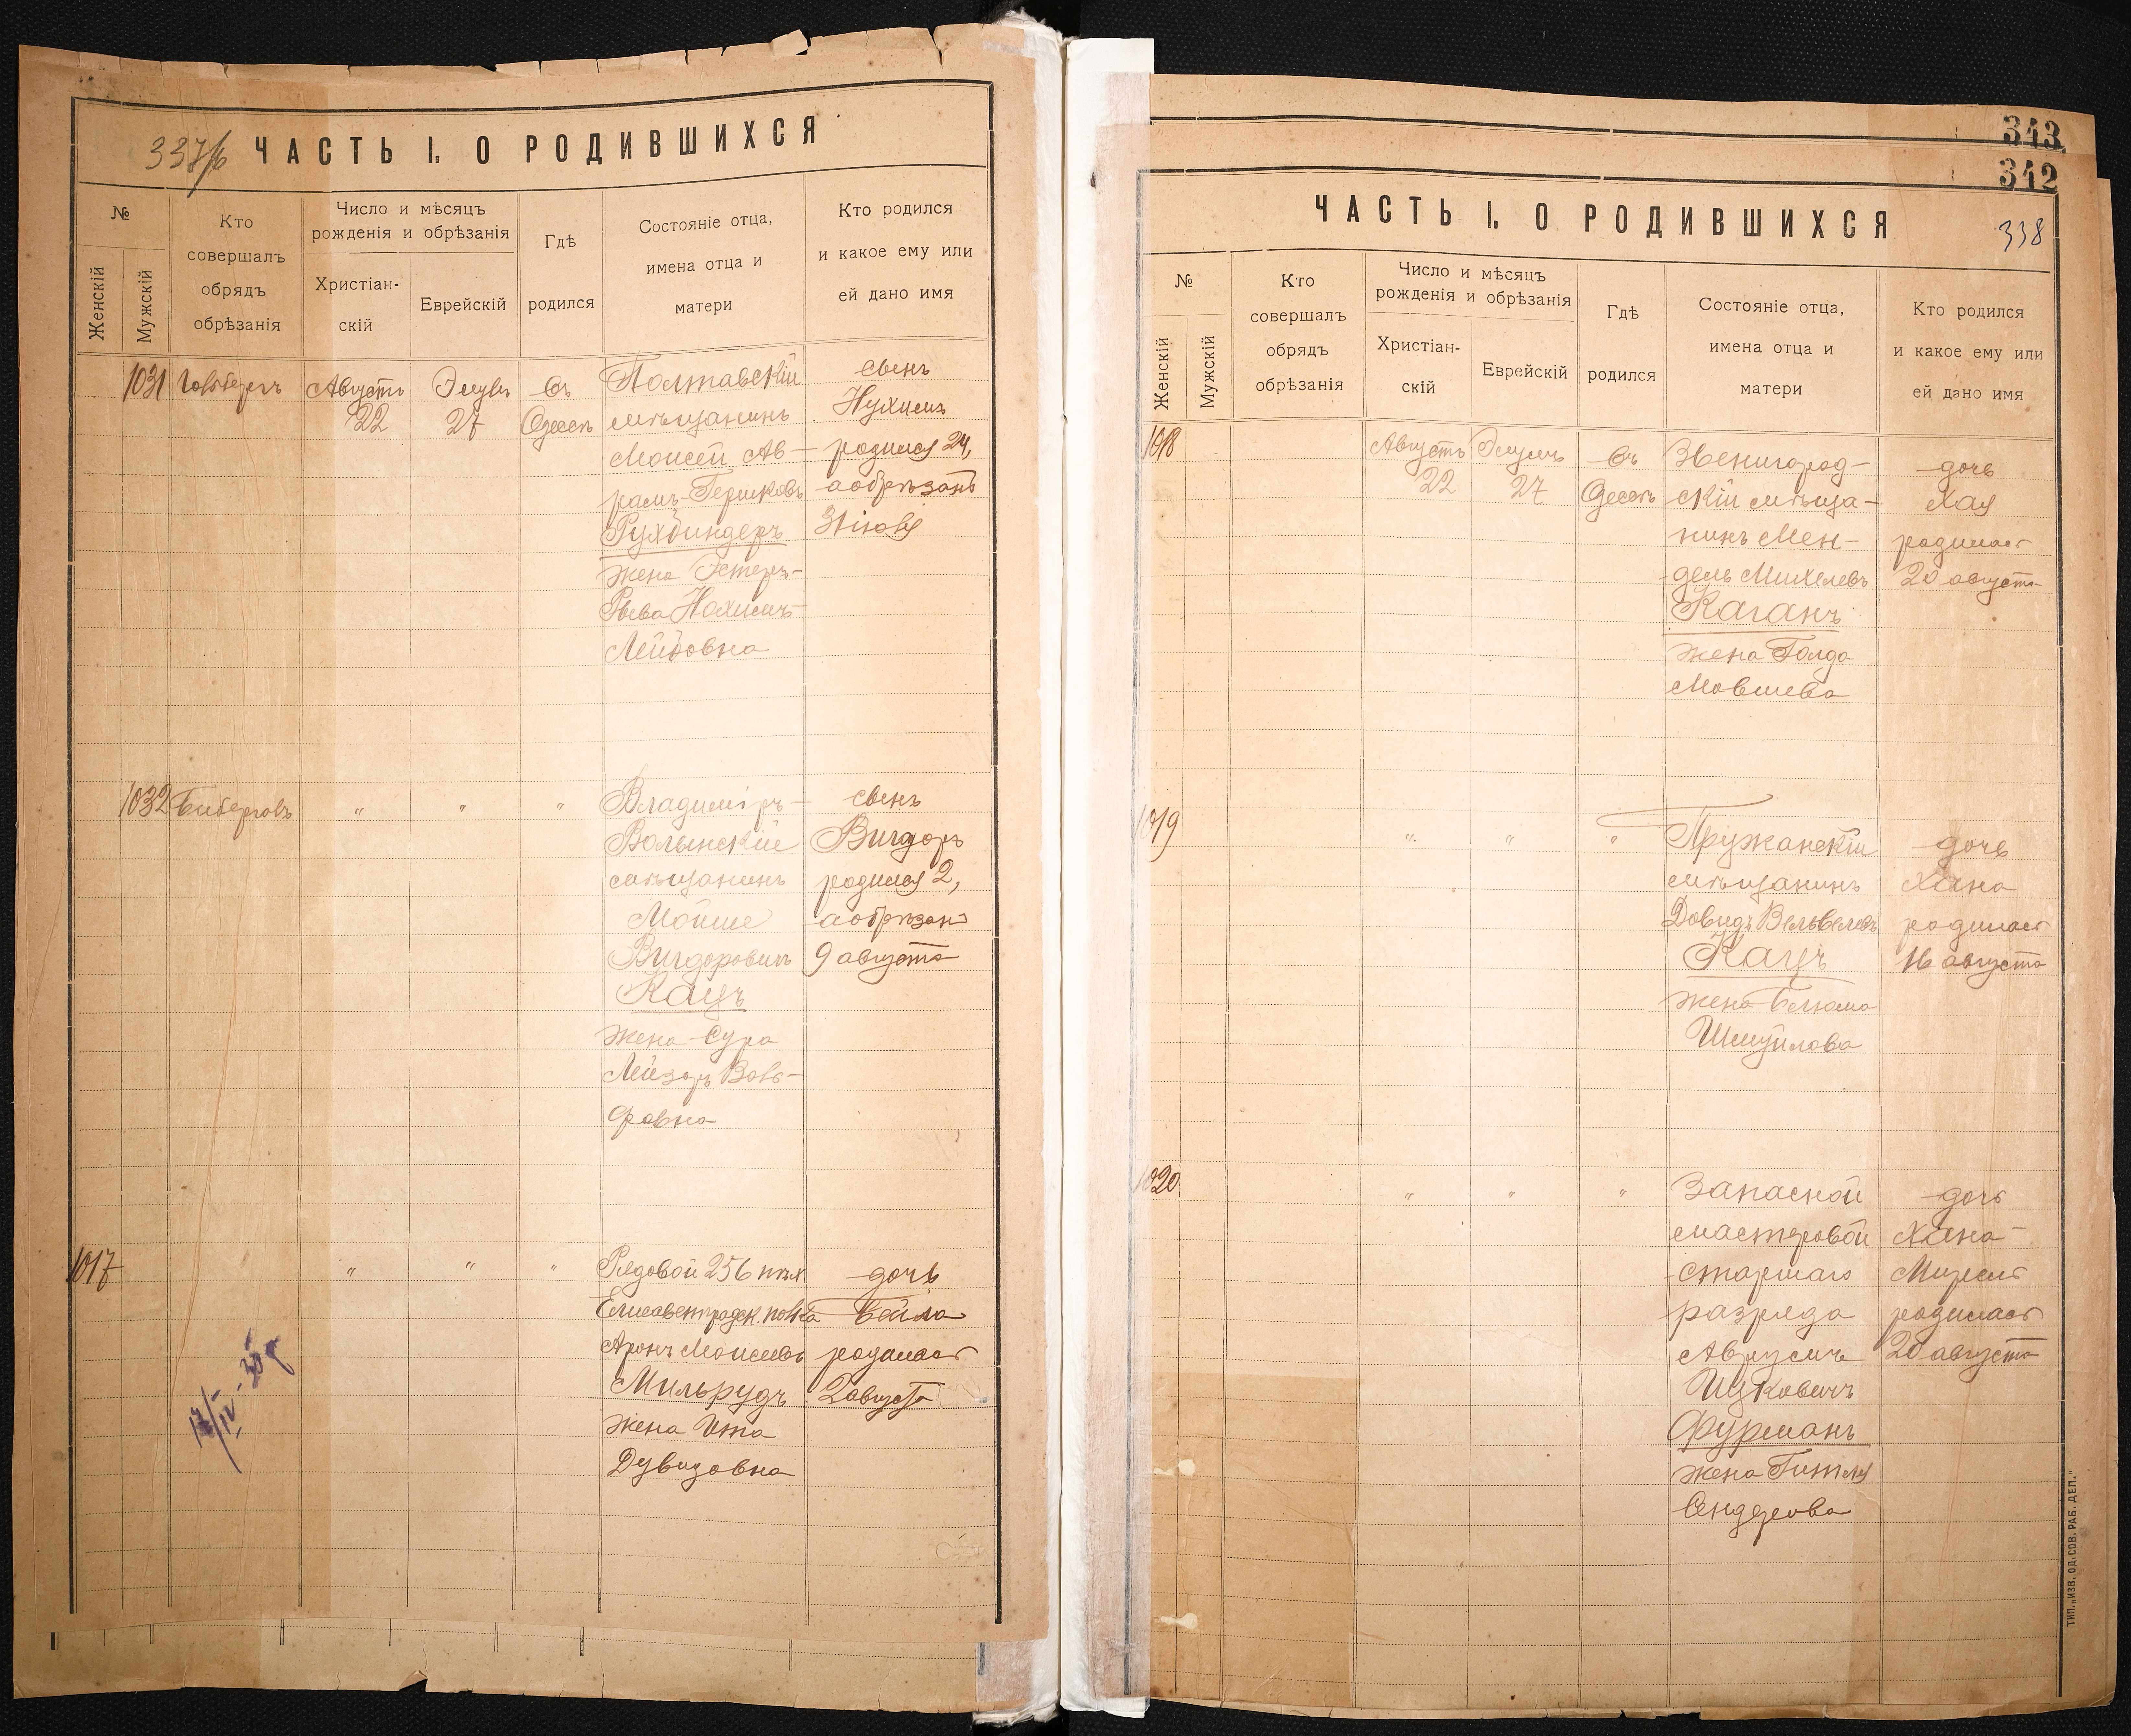 337/б ЧАСТЬ I. О РОДИВШИХСЯ
№
Женскій
Мужскій
Кто
совершалъ
обрядъ
обрѣзанія
Число и мѣсяцъ
рожденія и обрѣзанія
Христіан-
скій
Еврейскій
Гдѣ
родился
Состояніе отца,
имена отца и
матери
Кто родился
и какое ему или
ей дано имя
1031
Августъ
22
Элулъ
27
въ
Одессѣ
Полтавскій
мѣщанинъ
Моисей Ав-
рамъ-Гершковъ
Рухбиндеръ
жена Эстеръ-
Рыва Нохимъ-
Лейбовна
сынъ
Нухимъ
родился 24,
а обрѣзанъ
31 іюля
1032
"
"
"
Владимiръ-
Волынскій
мѣщанинъ
Мойше
Вигдоровичъ
Кацъ
жена Сура
Лейзоръ Воль-
фовна
сынъ
Вигдоръ
родился 2,
а обрѣзанъ
9 августа
1017
"
"
"
Рядовой 256 пѣх.
Елисаветградск. полка
Аронъ Моисеевъ
Мильрудъ
жена Ита
Дувидовна
дочь
Бейла
родилась
2 августа
343
342
ЧАСТЬ I. О РОДИВШИХСЯ 338
№
Женскій
Мужскій
Кто
совершалъ
обрядъ
обрѣзанія
Число и мѣсяцъ
рожденія и обрѣзанія
Христіан-
скій
Еврейскій
Гдѣ
родился
Состояніе отца,
имена отца и
матери
Кто родился
и какое ему или
ей дано имя
1018
Августъ
22
Элулъ
27
въ
Одессѣ
Звенигород-
скій мѣща-
нинъ Мен-
дель Михелевъ
Каганъ
жена Голда
Мовшева
дочь
Хая
родилась
20 августа
1019
"
"
"
Пружанскій
мѣщанинъ
Довидъ Вельвелевъ
Кацъ
жена Блюма
Шмуйлова
дочь
Хана
родилась
16 августа
1020
"
"
"
Запасной
мастеровой
старшаго
разряда
Аврумъ
Ицковичъ
Фурманъ
жена Гитля
Сендерова
дочь
Хана
родилась
20 августа
ТИП. „ИЗВ. ОД. СОВ. РАБ. ДЕП."